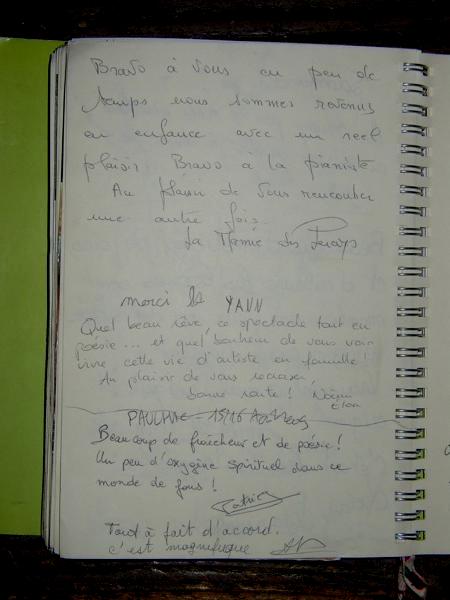 Bravo à vous en peu de
temps nous sommes revenus
en enfance avec un reel
plaisir Bravo à la pianiste
Au plaisir de vous rencontrer
une autre fois.
La Mamie des
merci YANN
Quel beau rêve, ce spectacle tout en
poésie... et quel bonheur de vous voir
vivre cette vie d'artiste en famille!
Au plaisir de vous recroiser,
bonne route!
PAULINE 15/16
Beaucoup de fraîcheur et de poésie!
Un peu d'oxygène spirituel dans ce
monde de fous!
Patrick
Tout à fait d'accord.
c'est magnifique